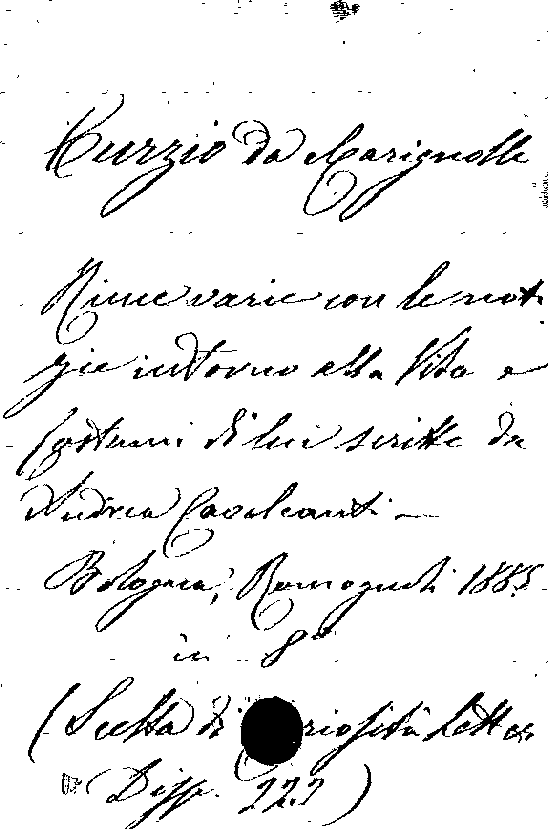 Curzio da Marignolle
Rime varie con le noti
zie intorno alla Vita e
Costumi di lui scritte da
Andrea Cavalcanti –
Bologna, Romagnoli 1885
in 8º
(Scelta di Curiosità Letter
Disp. 222)